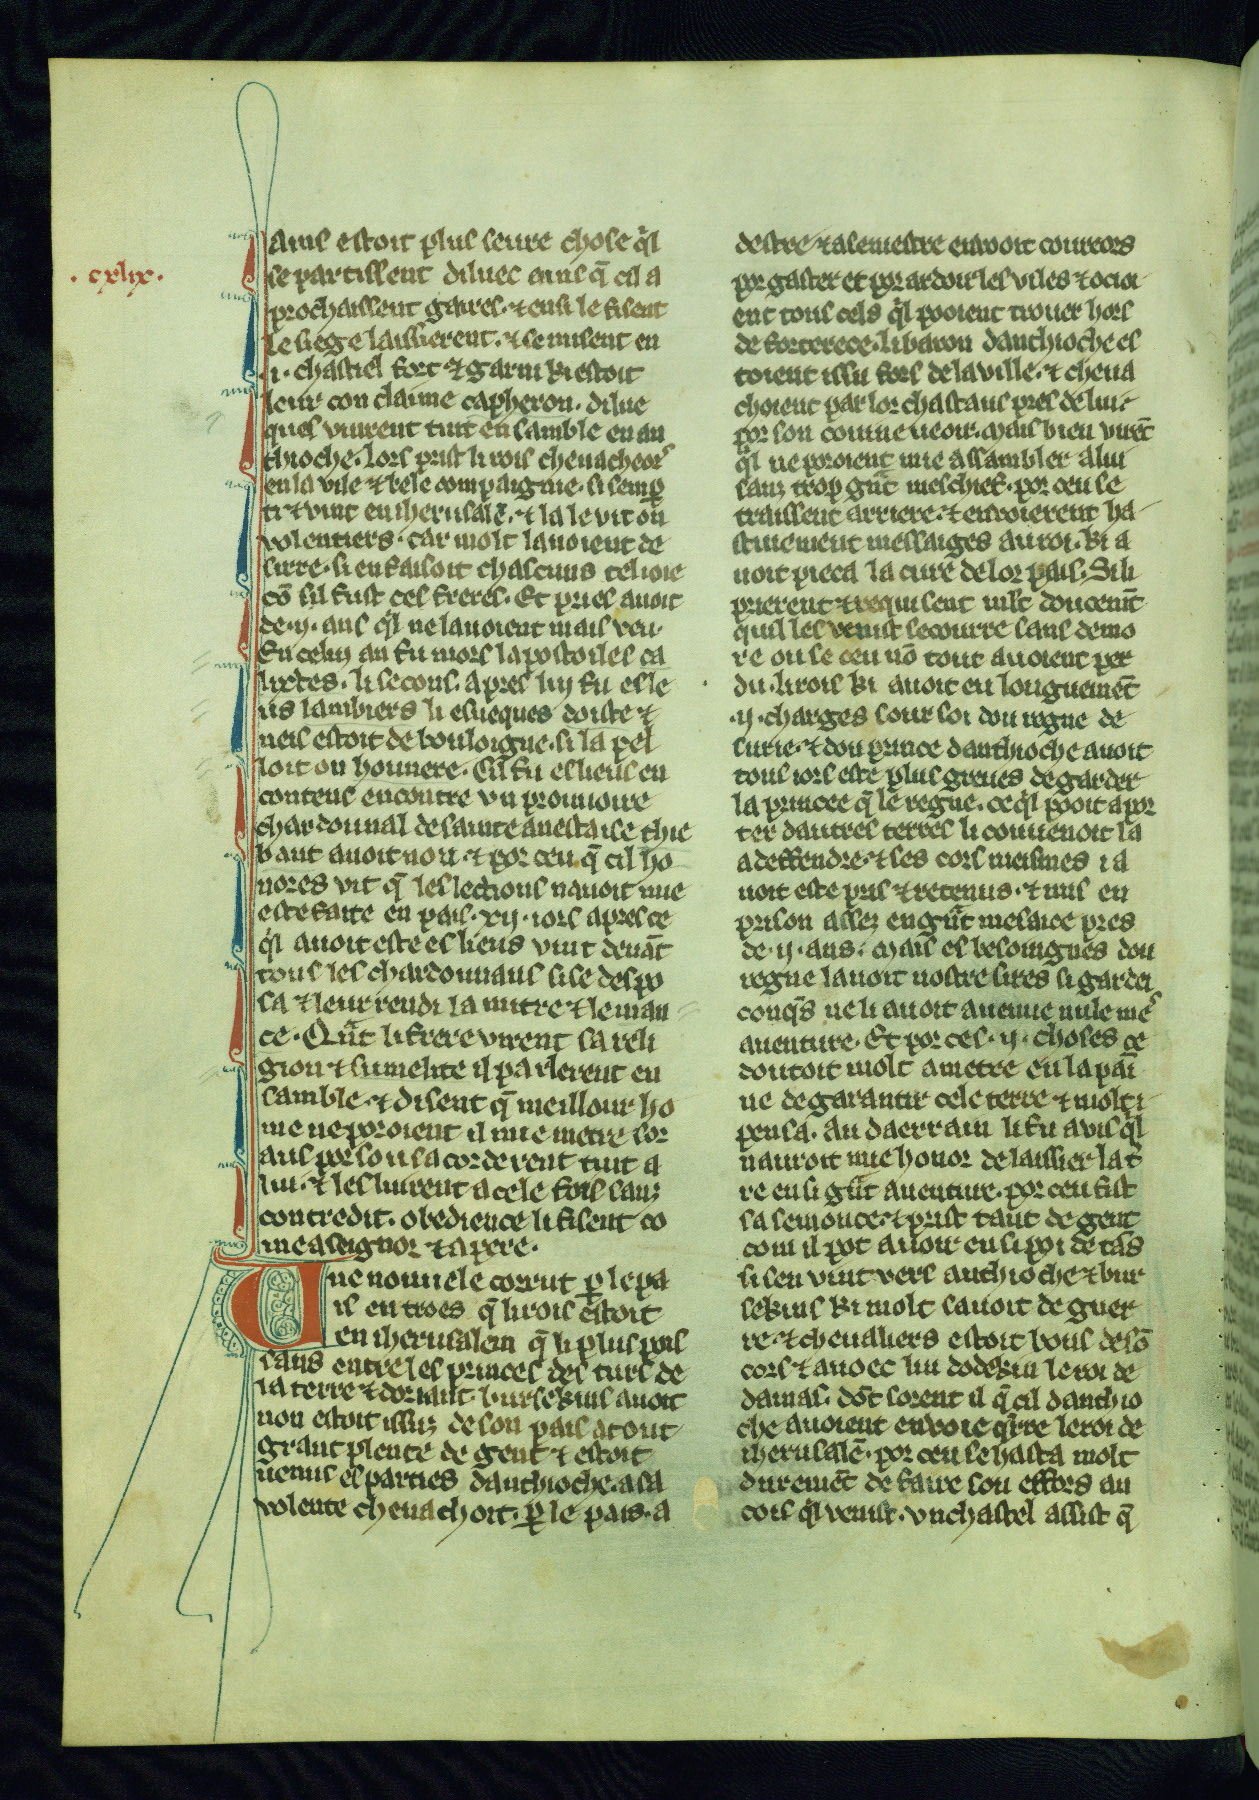 .cxlix.
ains estoit plus seure chose q̃l
se partissent diluec ains q̃ cil a
prochaissent gaires. ⁊ ensi le fisent
le siege laissierent. ⁊ se misent en
.i. chastiel fort ⁊ garni ki estoit
leur con claime capheron. dilue
ques vinrent tuit en samble en an
thioche. Lors prist li rois cheuacheors
en la vile ⁊ bele compaignie. si se mp̲
ti ⁊ vint en iherusalē. ⁊ la le vit on
volentiers. car molt lauoient de
sirre. si en faisoit chascuns tel ioie
cō sil fust ces freres. Et pries auoit
de .ij. ans q̃l ne lauoient mais veu.
En celui an fu mors lapostoiles ca
lixtes. li secons. apres lui fu esle
us lambiers li esueques doiste ⁊
neis estoit de bouloigne. si la pel
loit on honnere. Cil fu eslieus en
contens encontre vn prouuoire
chardounal de sainte anestaise thie
baut auoit non. ⁊ por ceu q̃ cil ho
nores vit q̃ les lections nauoit mie
este faite en pais. xij. iors apres ce
q̃l auoit este eslieus vint deuāt
tous les chardounaus si se despo
sa ⁊ leur rendi la mitre ⁊ le man
ce. Qũt li frere virent sa reli
gion ⁊ sumelite il parlerent en
samble. ⁊ disent q̃ meillour ho
me ne poroient il mie metre sor
aus por so il sacorderent tuit a
lui. ⁊ les liurent a cele fois sanz
contredit. obedience li fisent co
me a seignor ⁊ a pere.
Une nouuele corrut p̲ le pa
is en troes q̃ li rois estoit
en iherusalem q̃ li plus pois
sans entre les princes des turs de
la terre ⁊ doriant. bursekius auoit
non estoit issuz de son pais a tout
grant plente de gent ⁊ estoit
venus es parties danthioche. a sa
volente cheuachoit. p̲ le pais. a
destre ⁊ a semestre enuoit coureors
por gaster et por ardoir les viles ⁊ ocioi
ent tous cels q̃l pooient trouer hors
de forterece. li baron danthioche es
toient issu fors de la ville. ⁊ cheua
choient par lor chastaus pres de lui
por son couine ueoir. Mais bien virēt
q̃l ne poroient mie assambler a lui
sanz trop gũt meschief. por ceu se
traissent arriere. ⁊ enuoierent ha
stiuement messaiges au roi. ki a
uoit pieca la cure de lor pais. Si li
prierent ⁊ requisent mlt doucemt̄
quil les venist secourre sans demo
re ou se ceu nō tout auoient per
du. li rois ki auoit eu longuemēt
.ij. charges sour soi dou regne de
surie. ⁊ dou prince danthioche auoit
tous iors este plus greues de garder
la princee q̃ le regne. ce q̃l pooit apor
ter dautres terres li conuenoit la
a deffendre. ⁊ ses cors meismes i a
uoit este pris ⁊ retenus. ⁊ mis en
prison assez en gũt mesaice pres
de .ij. ans. Mais es besoingnes dou
regne lauoit nostre sires si gardei
conq̃s ne li auoit auenue nule me
auenture. Et por ces .ij. choses ce
doutoit molt a metre en la pai
ne de garantir cele terre ⁊ molt i
pensa. Au daerrain li fu auis q̃l
nauroit mie honor de laissier la t̄
re en si gũt auenture. por ceu fist
sa semonce. ⁊ prist tant de gent
com il pot auoir en si poi de tās
si sen vint vers anthioche ⁊ bur
sekius ki molt sauoit de guer
re. ⁊ cheualiers estoit bons de sō
cors ⁊ auoec lui dodekin le roi de
damas. dōt sorent il q̃ cil danthio
che auoient enuoie q̃rre le roi de
iherusalē. por ceu se hasta molt
duremēt de faire son effors an
cois q̃l venist. vn chastel assist q̃